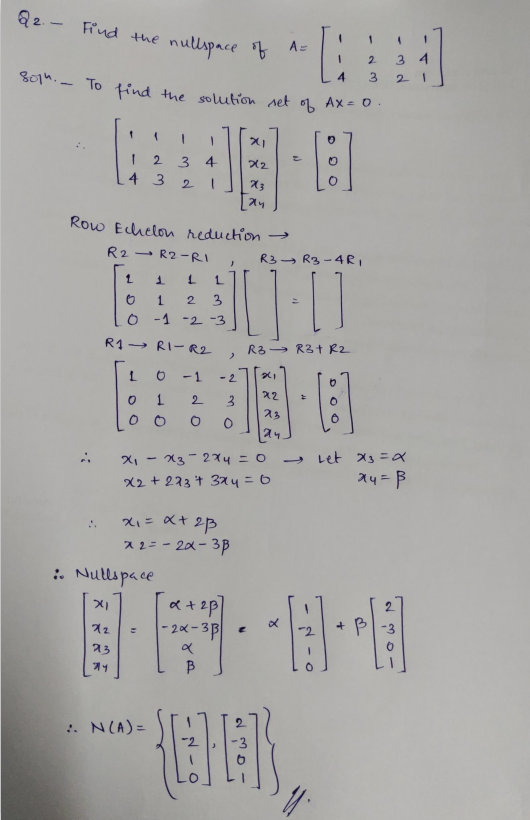 Q2.- Find the nullspace of A= [1 1 1 1
1 2 3 4
4 3 2 1]
Soln.- To find the solution set of AX=0.
∴ [1 1 1 1
1 2 3 4
4 3 2 1] [x1
x2
x3
x4] = [0
0
0]
Row Echelon reduction →
R2 → R2-R1 , R3 → R3-4R1
[1 1 1 1
0 1 2 3
0 -1 -2 -3] [ ] = [ ]
R1 → R1-R2 , R3 → R3+R2
[1 0 -1 -2
0 1 2 3
0 0 0 0] [x1
x2
x3
x4] = [0
0
0]
∴ x1 - x3 - 2x4 = 0 → Let x3 = α
x2 + 2x3 + 3x4 = 0 x4 = β
∴ x1 = α + 2β
x2 = -2α - 3β
∴ Nullspace
[x1
x2
x3
x4] = [α + 2β
-2α - 3β
α
β] = α [1
-2
1
0] + β [2
-3
0
1]
∴ N(A) = {[1
-2
1
0], [2
-3
0
1]}